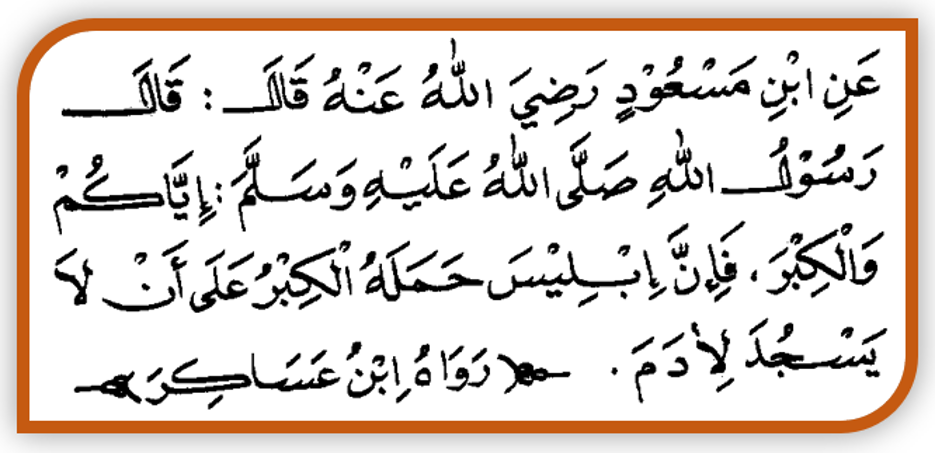 عَنِ ابْنِ مَسْعُوْدٍ رَضِيَ اللّٰهُ عَنْهُ قَالَ : قَالَ
رَسُوْلُ اللّٰهِ صَلَّى اللّٰهُ عَلَيْهِ وَسَلَّمَ : إِيَّاكُمْ
وَالْكِبْرَ ، فَإِنَّ إِبْلِيْسَ حَمَلَهُ الْكِبْرُ عَلَى أَنْ لَا
يَسْجُدَ لِأدَمَ . ﴿رَوَاهُ ابْنُ عَسَاكِرَ﴾